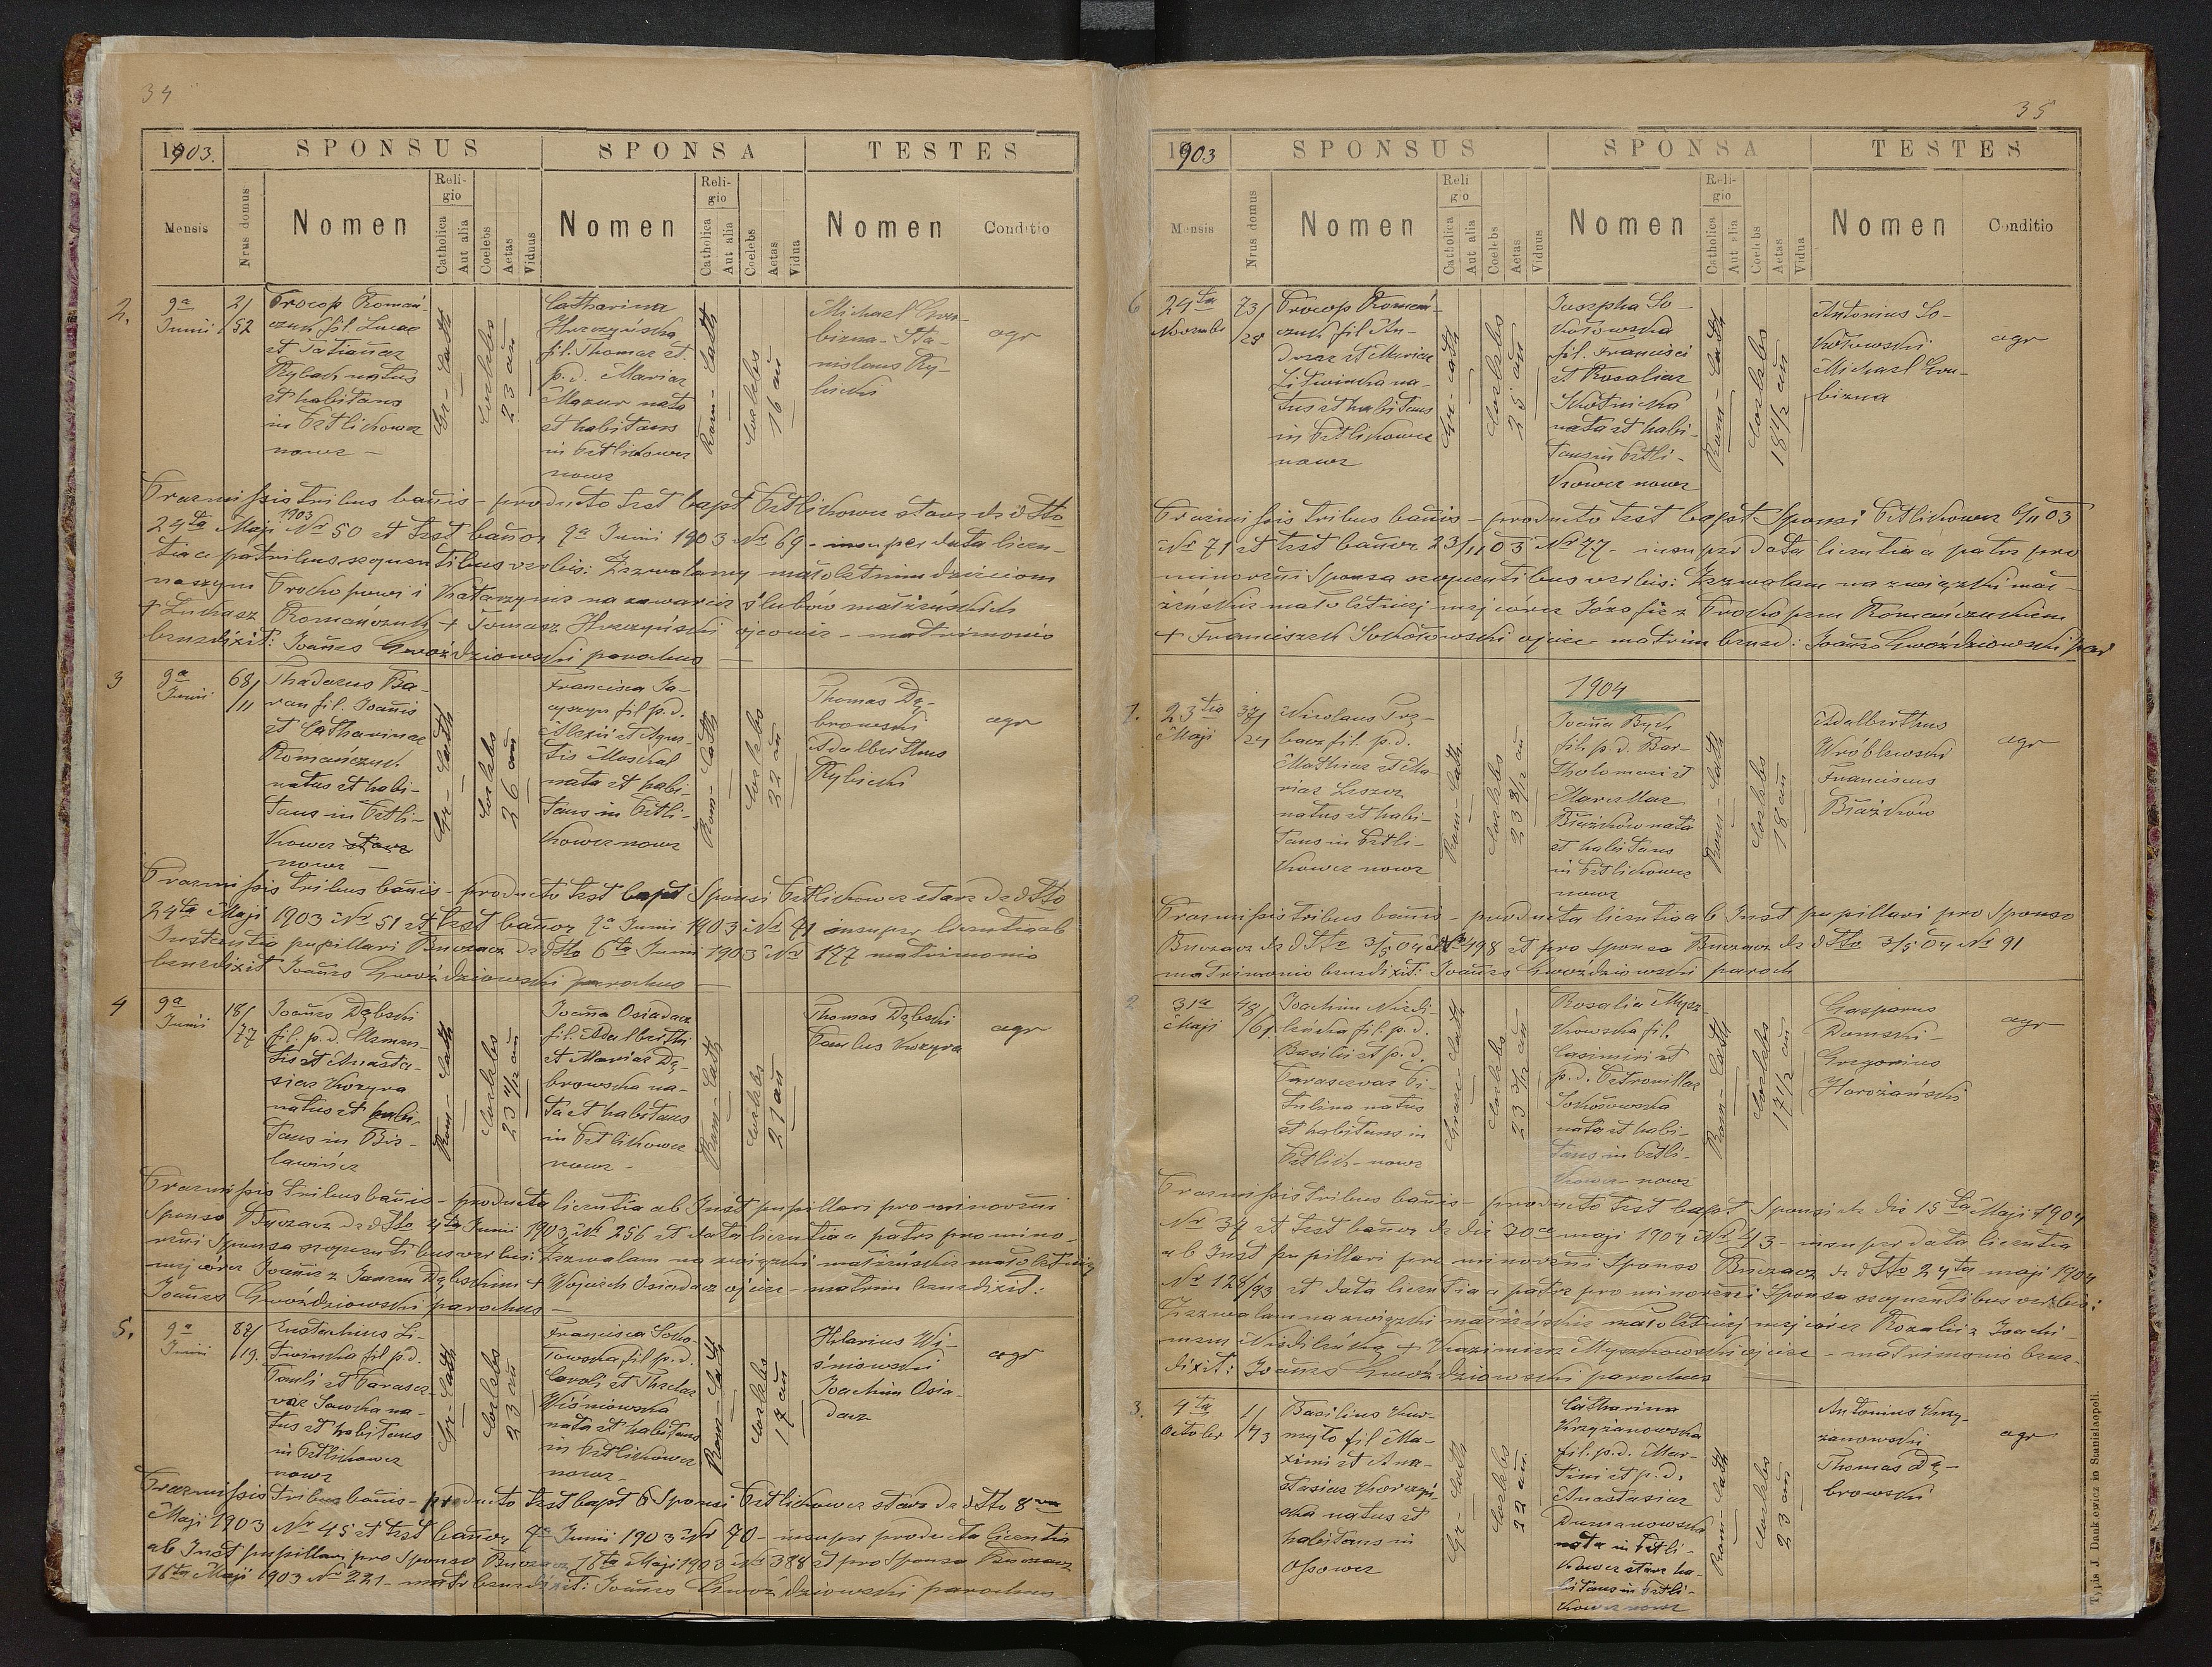 34
1903.
SPONSUS
SPONSA
TESTES
Mensis
Nrus domus
Nomen
Religio
Catholica
Aut alia
Coelebs
Aetas
Viduus
Nomen
Religio
Catholica
Aut alia
Coelebs
Aetas
Vidua
Nomen
Conditio
2.
9a
Junii
21/
52
Procop Romań-
czuk fil. Lucae
et Tatiannae
Rybach natus
et habitans
in Petlikowce
nowe -
Gr - Cath
Coelebs
23 an
Catharina
Hreczyńska
fil. Thomae et
p. d. Mariae
Mazur nata
et habitans
in Petlikowce
nowe
Rom - Cath
Coelebs
16 an
Michael
bizna - Sta-
nislaus Ry-
bicki
agr
Praemissis tribus bannis - producto test bapt Petlikowce stare de dtto
24ta Maji 1903 Nr 50 et test bannor 9a Junii 1903 Nr 69 - insuper data licen-
tia a patribus sequentibus verbis: Zezwalamy małoletnim dzieciom
naszym Prochopowi i Katarzynie na zawarcie ślubów małżeńskich
+ Łukasz Romańczuk + Tomasz Hreczyński ojcowie - matrimonio
benedixit: Joannes Gwoździowski parochus
3
9a
Junii
68/
11
Thadaeus Ba-
ran fil. Joannis
et Catharinae
Romańczuk
natus et habi-
tans in Petli-
kowce stare
nowe -
Gr - Cath
Coelebs
26 an
Francisca Ja-
cyszyn fil p. d.
Alexii et Agne-
tis Moskal
nata et habi-
tans in Petli-
kowce nowe
Rom - Cath
Coelebs
22 an
Thomas Dą-
browski
Adalberthus
Rybicki
agr
Praemissis tribus bannis - producto test bapt Sponsi Petlikowce stare de dtto
24ta Maji 1903 Nr 51 et test bannor 9a Junii 1903 Nr 71 insuper licentia ab
Instantia pupillari Buczacz de dtto 6ta Junii 1903 Nr 177 matrimonio
benedixit Joannes Gwoździowski parochus
4
9a
Junii
18/
77
Joannes Dębski
fil. p. d. Clemen-
tis et Anasta-
siae Kozyra
natus et habi-
tans in Bie-
lawińce
Rom - Cath
Coelebs
23 4/12 an
Joanna Osiadacz
fil. Adalberthi
et Mariae Dą-
browska na-
ta et habitans
in Petlikowce
nowe -
Rom - Cath
Coelebs
21 an
Thomas Dębski
Paulus Kozyra
agr
Praemissis tribus bannis - producta licentia ab Inst pupillari pro minorenni
Sponso Buczacz de dtto 4ta Junii 1903 Nr 256 et data licentia a patre pro mino-
renni Sponsa sequentibus verbis: Zezwalam na związki małżeńskie małoletniej
mej córce Joannie z Janem Dębskim + Wojciech Osiadacz ojciec - matrim benedixit:
Joannes Gwoździowski parochus -
5.
9a
Junii
82/
19.
Eustachius Li-
twinka fil p. d.
Pauli et Parasce-
vae Sawcka na-
tus et habitans
in Petlikowce
nowe
Gr - Cath
Coelebs
23 an
Francisca Soko-
łowska, fil p. d.
Caroli et Theclae
Wiśniowska
nata et habitans
in Petlikowce
nowe -
Rom - Cath
Coelebs
17 an
Hilarius Wi-
śniowski
Joachim Osia-
dacz
agr
Praemissis tribus bannis - producto test bapt Sponsi Petlikowce stare de dtto 8va
Maji 1903 Nr 45 et test bannor 7a Junii 1903 Nr 70 - insuper producta licentia
ab Inst pupillari pro Sponso Buczacz 17ta Maji 1903 Nr 388 et pro Sponsa Buczacz
16ta Maji 1903 Nr 221 - matr benedixit: Joannes Gwoździowski parochus
35
1903
SPONSUS
SPONSA
TESTES
Mensis
Nrus domus
Nomen
Religio
Catholica
Aut alia
Coelebs
Aetas
Viduus
Nomen
Religio
Catholica
Aut alia
Coelebs
Aetas
Vidua
Nomen
Conditio
6
24ta
Novembr
73/
28
Procop Romań-
czuk fil An-
dreae et Mariae
Litwinka na-
tus et habitans
in Petlikowce
nowe
Gr - cath
Coelebs
25 an
Josepha So-
kołowska
fil. Francisci
et Rosaliae
Skotnicka
nata et habi-
tans in Petli-
kowce nowe
Rom - Cath
Coelebs
18 1/2 an
Antonius So-
kołowski
Michael
bizna
agr
Praemissis tribus bannis - producto test bapt Sponsi Petlikowce 6/11 03
Nr 71 et test bannor 23/11 03 Nr 77 - insuper data licentia a patre pro
minorenni Sponsa sequentibus verbis: Zezwalam na związki mał-
żeńskie małoletniej mej córce Józefie z Prokopem Romańczukiem
+ Franciszek Sokołowski ojciec - matrim bened: Joannes Gwoździowski par
1904
1.
23tia
Maji
37/
24
Nicolaus Trę-
bacz fil. p. d.
Mathiae et Ma-
riae Leszcz
natus et habi-
tans in Petli-
kowce nowe
Rom - Cath.
Coelebs
23 3/12 an
Joanna Bych
fil. p. d. Bar-
tholomaei et
Marcellae
Błażków nata
et habitans
in Petlikowce
nowe
Rom - Cath
Coelebs
18 an
Adalberthus
Wróblewski
Franciscus
Błażków
agr
Praemissis tribus bannis - producta licentia ab Inst pupillari pro Sponso
Buczacz de dtto 3/5 04 Nr 498 et pro Sponsa Buczacz de dtto 3/5 04 Nr 91
matrimonio benedixit: Joannes Gwoździowski paroch
2
31a
Maji
48/
61.
Joachim Niedi-
leńka fil. p. d.
Basilii et p. d.
Parascevae Pi-
tulina natus
et habitans in
Petlik - nowe
Graec - Cath
Coelebs
Rosalia Mysz-
kowska fil.
Casimiri et
p. d. Petronillae
Sokołowska
nata et habi-
tans in Petli-
kowce - nowe
Rom - Cath
Coelebs
17 1/2 an
Gasparus
Domski -
Gregorius
Horożański
agr
Praemissis tribus bannis - producto test bapt Sponsi de die 15ta Maji 1904
Nr 34 et test bannor de die 30a maji 1904 Nr 43 - insuper data licentia
ab Inst pupillari pro minorenni Sponso Buczacz de dtto 24ta maji 1904
Nr 128/93 et data licentia a patre pro minorenni Sponsa sequentibus verbis:
Zezwalam na związki małżeńskie małoletniej mej córce Rozalii z Joachi-
mem Niedileńką + Kazimierz Myszkowski ojciec - matrimonio bene-
dixit: Joannes Gwoździowski parochus
3.
4ta
October
1/
143
Basilius Kur-
myło fil Ma-
ximi et Ana-
stasiae
natus et
habitans in
Ossowce
Gr - Cath
Coelebs
22 an.
Catharina
Krzyżanowska
fil. p. d. Mar-
tini et p. d.
Anastasiae
Dumanowska
nata in Petli-
kowce stare ha-
bitans in Petli-
kowce nowe
Rom - Cath
Coelebs
23 an
Antonius Krzy-
żanowski
Thomas Dą-
browski
agr
Typis J. Dankiewicz in Stanislaopoli.